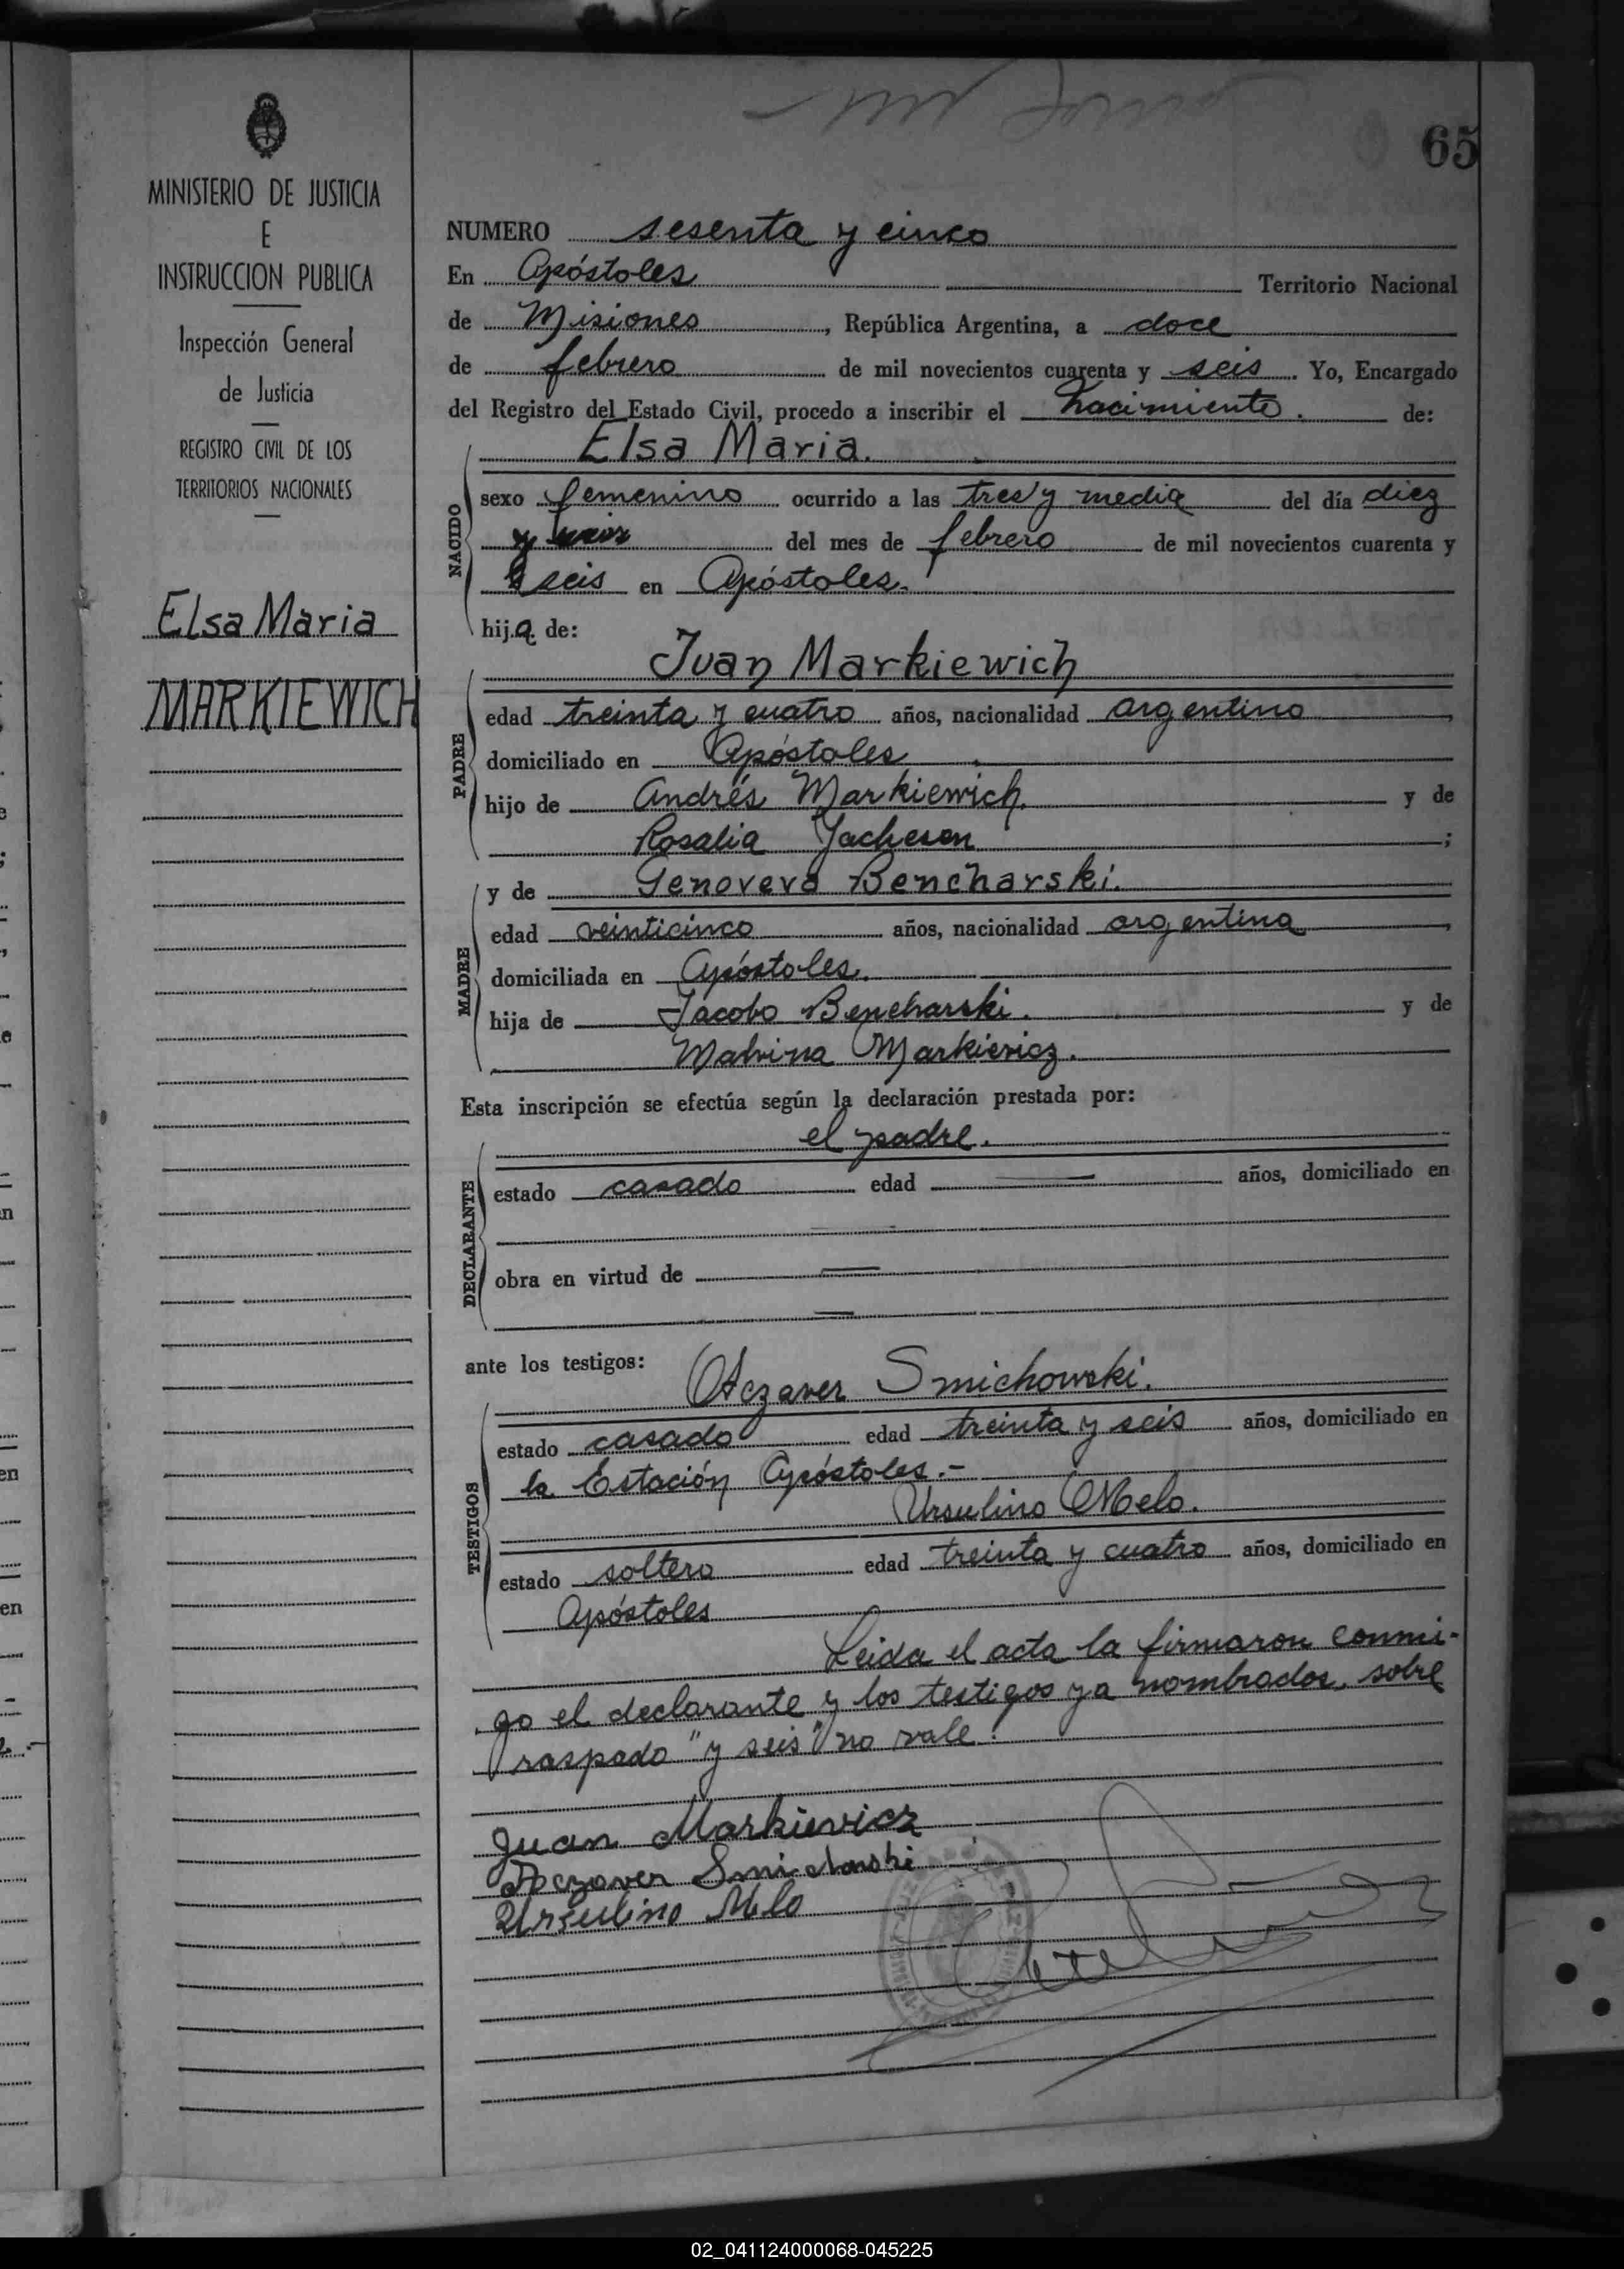 65
MINISTERIO DE JUSTICIA
E
INSTRUCCION PUBLICA
Inspección General
de Justicia
REGISTRO CIVIL DE LOS
TERRITORIOS NACIONALES
Elsa Maria
MARKIEWICH
NUMERO sesenta y cinco
En Apóstoles Territorio Nacional
de Misiones, República Argentina, a doce
de febrero de mil novecientos cuarenta y seis. Yo, Encargado
del Registro del Estado Civil, procedo a inscribir el nacimiento. de:
Elsa Maria.
NACIDO
sexo femenino ocurrido a las tres y media del día diez
y seis del mes de febrero de mil novecientos cuarenta y
seis en Apóstoles.
hija de:
Juan Markiewich
PADRE
edad treinta y cuatro años, nacionalidad argentino,
domiciliado en Apóstoles
hijo de Andrés Markiewich. y de
Rosalia Jacheson;
y de Genoveva Bencharski.
MADRE
edad veinticinco años, nacionalidad argentina,
domiciliada en Apóstoles.
hija de Jacobo Bencharski. y de
Malvina Markievicz.
Esta inscripción se efectúa según la declaración prestada por:
el padre.
DECLARANTE
estado casado edad — años, domiciliado en
—
obra en virtud de —
—
ante los testigos: Smichowski.
TESTIGOS
estado casado edad treinta y seis años, domiciliado en
la Estación Apóstoles.-
Ursulino Melo.
estado soltero edad treinta y cuatro años, domiciliado en
Apóstoles
Leida el acta la firmaron conmi-
go el declarante y los testigos ya nombrados, sobre
raspado "y seis" no vale.
Juan Markievicz
Smichowski
Ursulino Melo
02_041124000068-045225